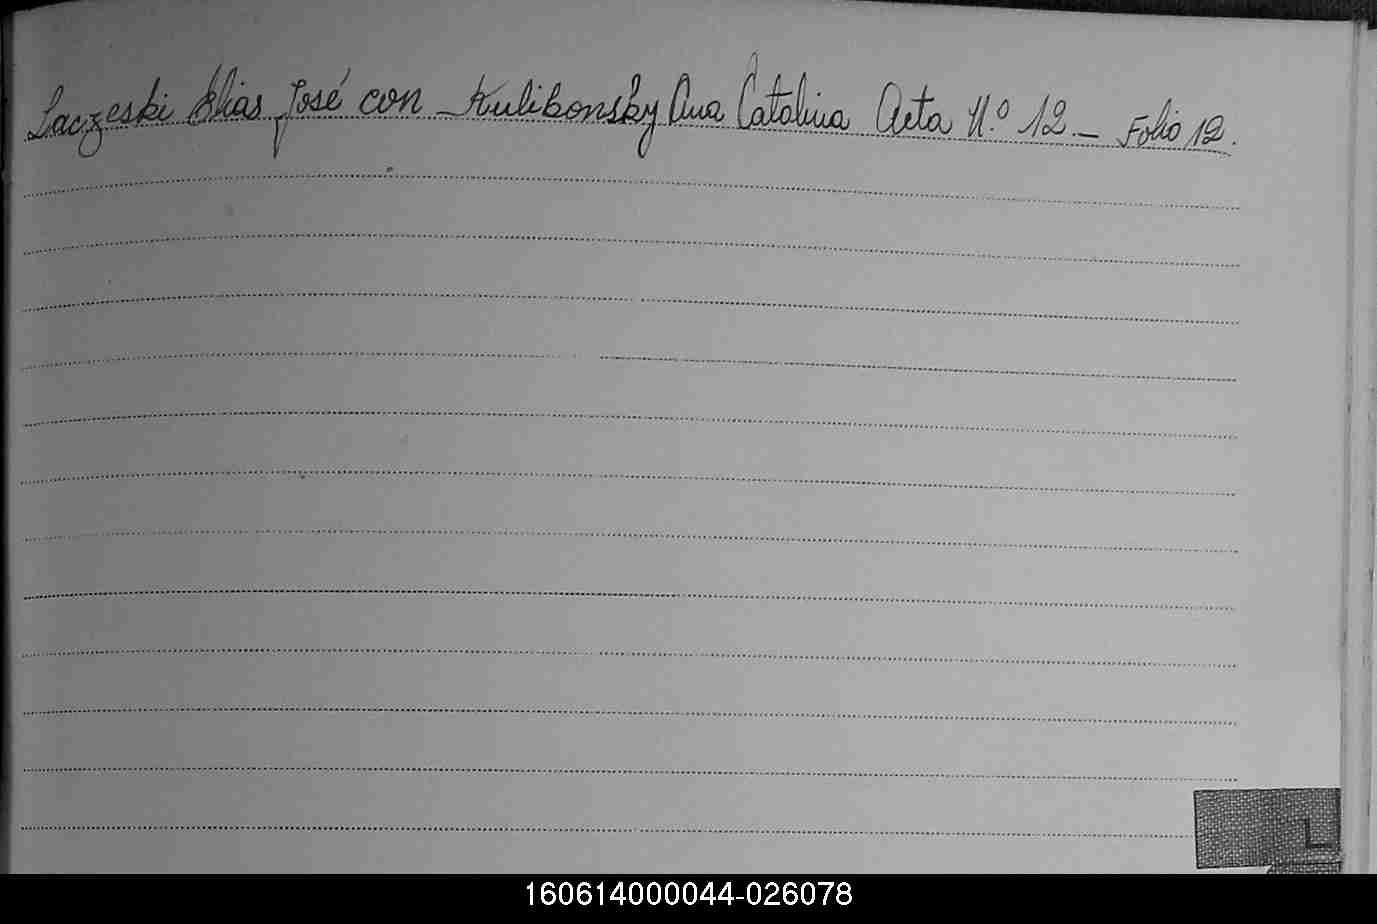 Laczeski Elias José con Kulikonsky Ana Catalina Acta N.º 12 - Folio 12.
L
160614000044-026078